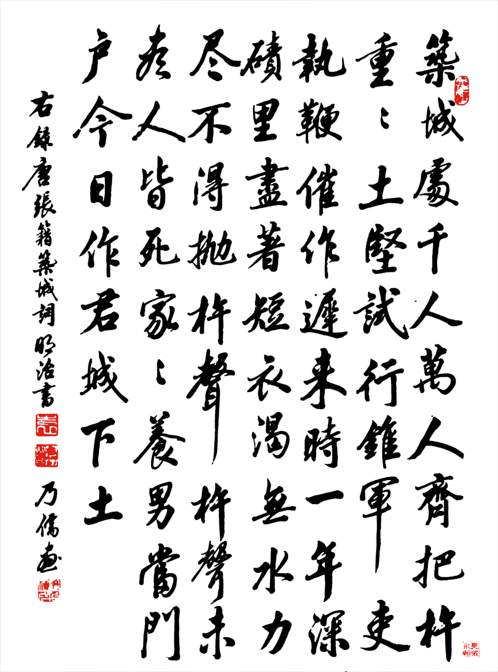 築城處千人萬人齊把杵
重〻土堅試行錐軍吏
執鞭催作遲来時一年深
磧里盡著短衣渴無水力
尽不得抛杵聲杵聲未
人皆死家〻養男當門
户今日作君城下土
右錄唐張籍築城詞明治書
乃儒画